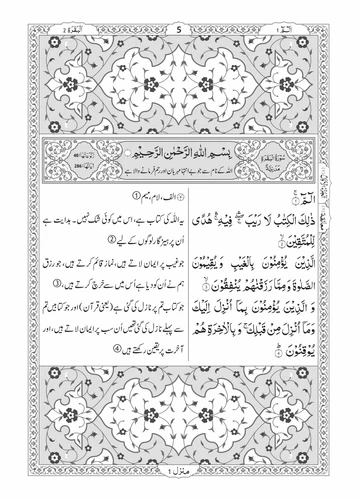 الٓمّٓ ١
5
اَلْبَقَرَة 2
سُوْرَةُ الْبَقَرَةِ مَدَنِيَّةٌ
بِسْمِ اللهِ الرَّحْمٰنِ الرَّحِيْمِ
اللہ کے نام سے جو بے انتہا مہربان اور رحم فرمانے والا ہے
286
40
الٓمّٓ ۚ‏
ذٰلِكَ الْكِتٰبُ لَا رَيْبَ ۛ ۖ فِيْهِ ۛ هُدًى
لِّلْمُتَّقِيْنَ ۙ
الَّذِيْنَ يُؤْمِنُوْنَ بِالْغَيْبِ وَيُقِيْمُوْنَ
الصَّلٰوةَ وَمِمَّا رَزَقْنٰهُمْ يُنْفِقُوْنَ ۙ
وَ الَّذِيْنَ يُؤْمِنُوْنَ بِمَا اُنْزِلَ اِلَيْكَ
وَمَا اُنْزِلَ مِنْ قَبْلِكَ ۚ وَ بِالْاٰخِرَةِ هُمْ
يُوْقِنُوْنَ ؕ
الف، لام، میم ①
یہ اللہ کی کتاب ہے، اس میں کوئی شک نہیں۔ ہدایت ہے
اُن پرہیزگار لوگوں کے لیے ②
جو غیب پر ایمان لاتے ہیں، نماز قائم کرتے ہیں، جو رزق
ہم نے اُن کو دیا ہے اُس میں سے خرچ کرتے ہیں، ③
جو کتاب تم پر نازل کی گئی ہے (یعنی قرآن) اور جو کتابیں تم
سے پہلے نازل کی گئی تھیں اُن سب پر ایمان لاتے ہیں، اور
آخرت پر یقین رکھتے ہیں ④
منزل ۱